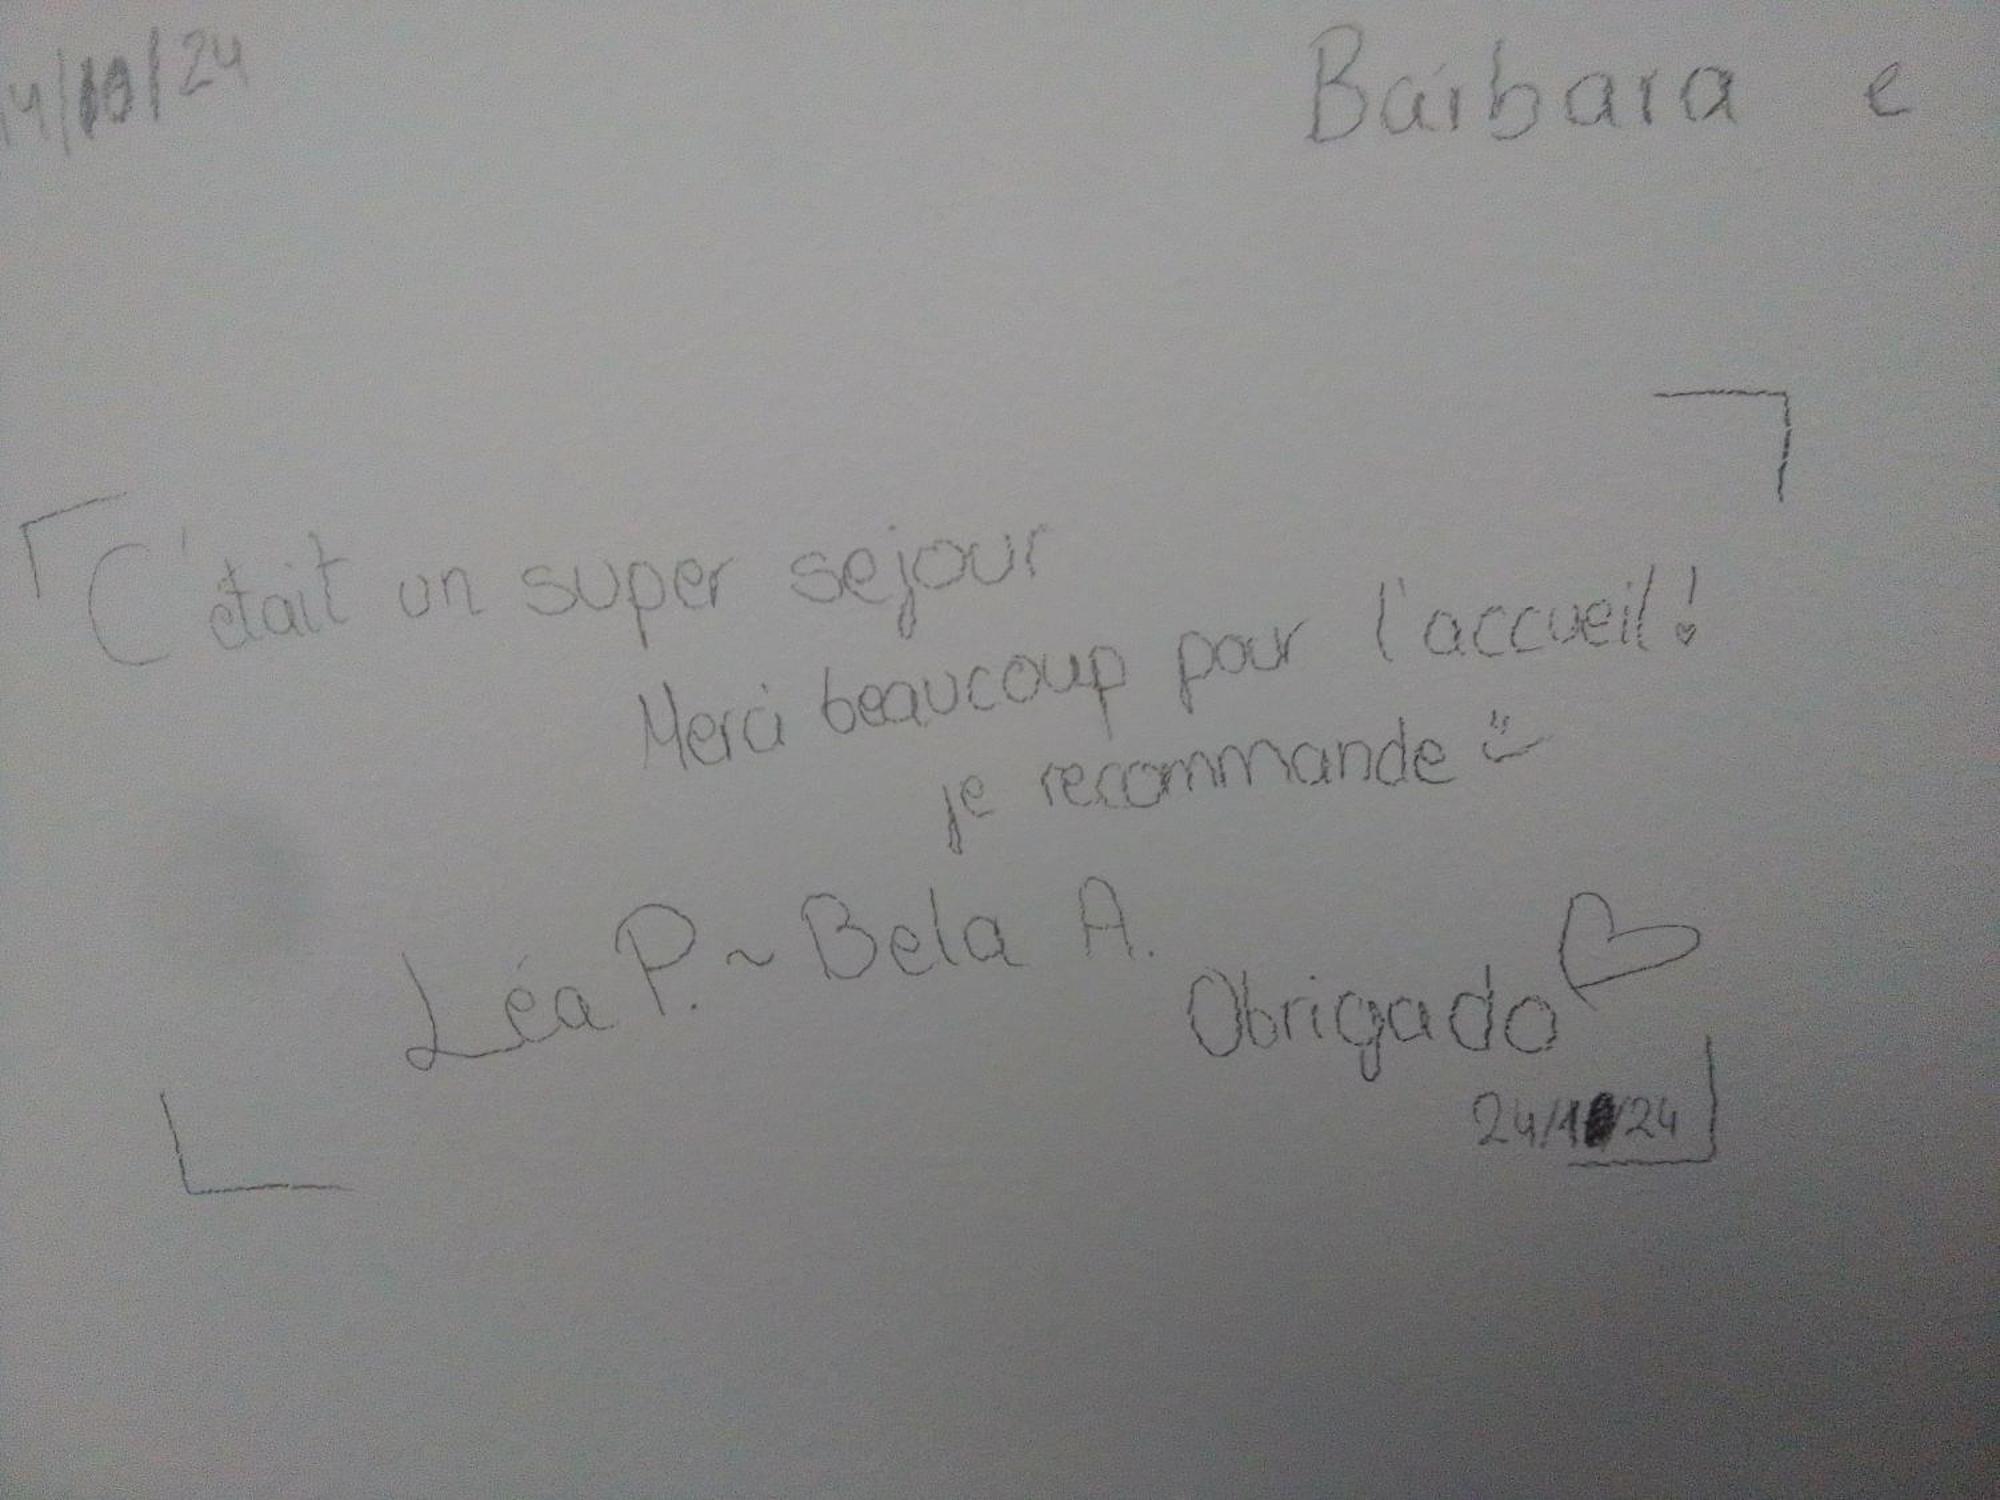 14/10/24
Bárbara e
C'était un super sejour
Merci beaucoup pour l'accueil!
je recommande
Léa P. ~ Bela A.
Obrigado
24/10/24